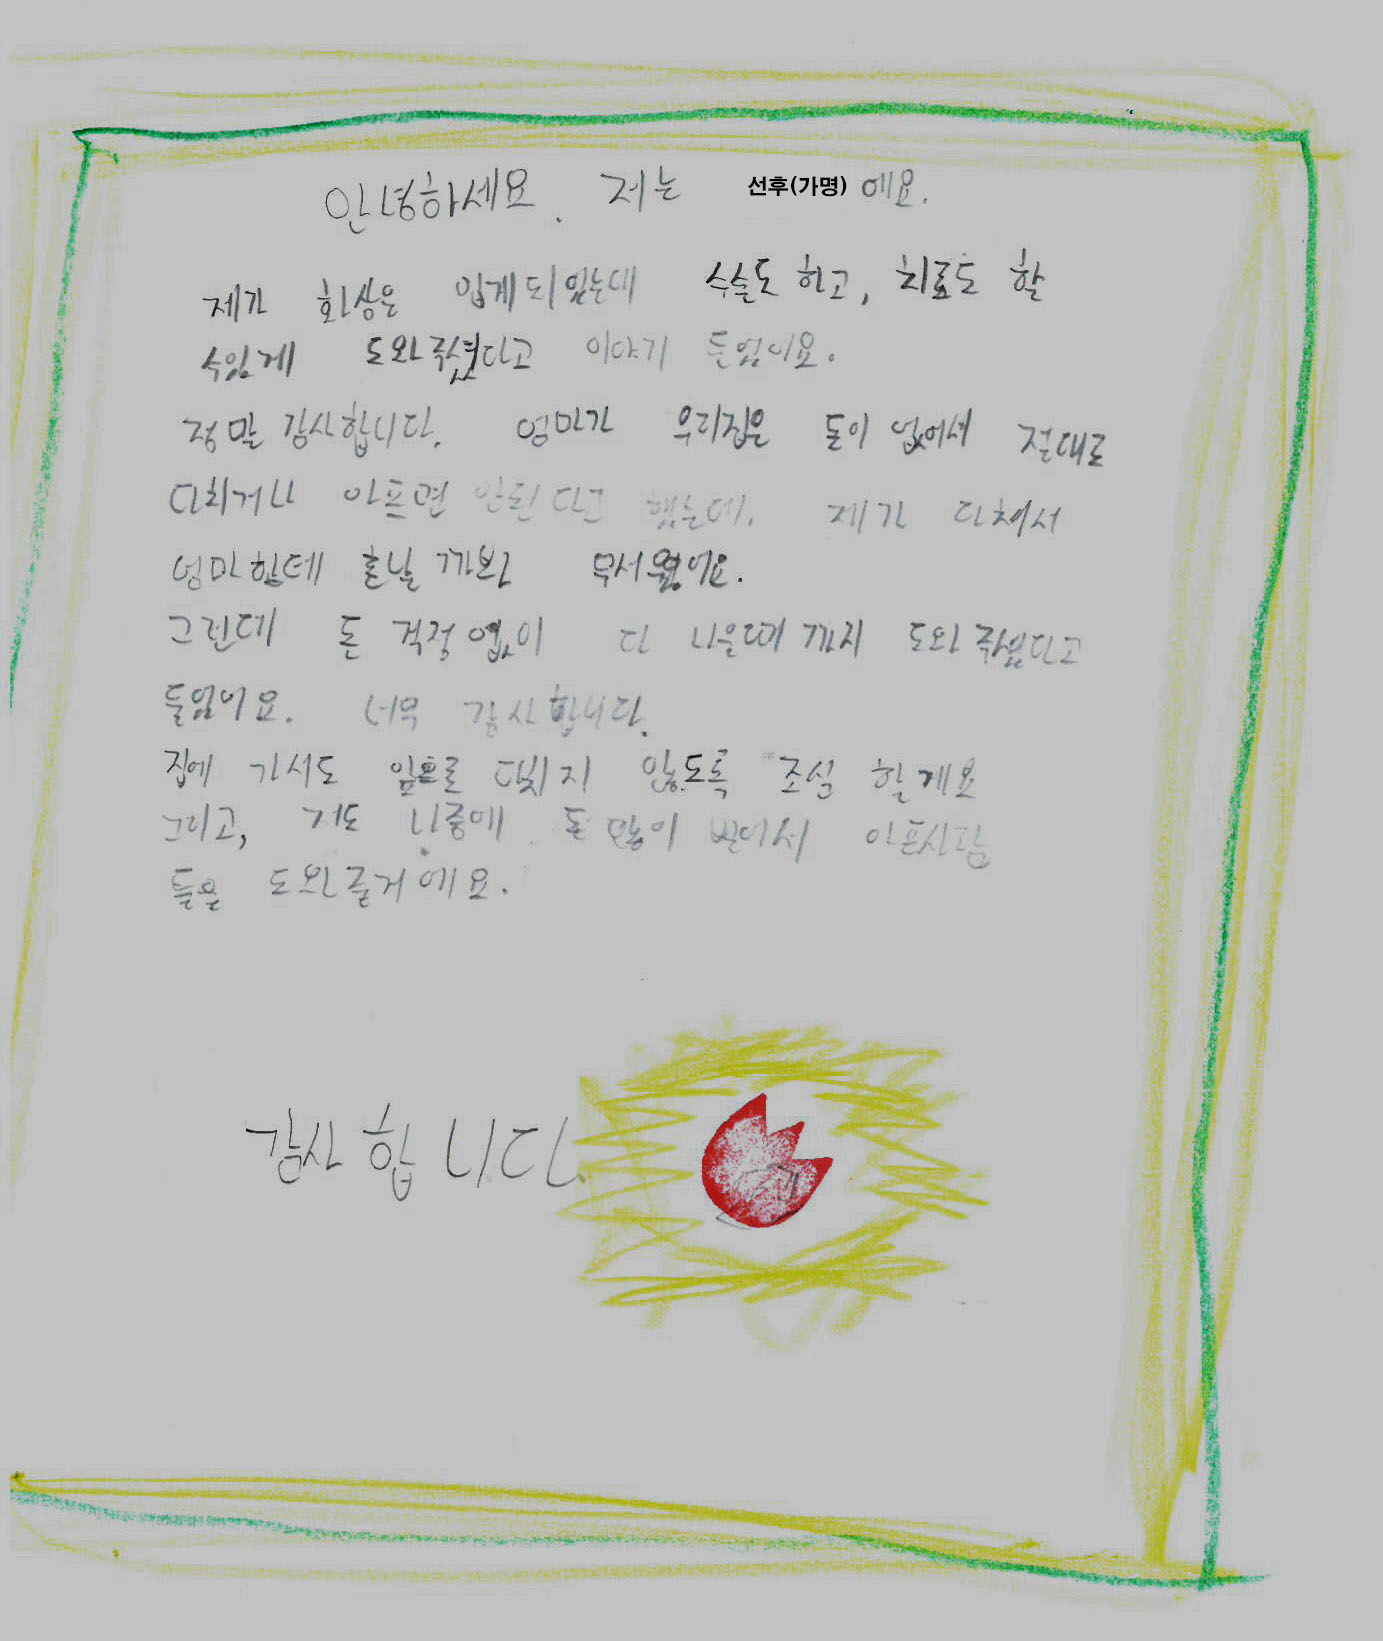 안녕하세요. 저는 선후(가명) 에요.
제가 화상은 입게되었는데 수술도 하고, 치료도 할
수있게 도와주셨다고 이야기 들었어요.
정말 감사합니다. 엄마가 우리집은 돈이 없어서 절대로
다치거나 아프면 안된다고 했는데. 제가 다쳐서
엄마한테 혼날 까봐 무서웠어요.
그런데 돈 걱정 없이 다 나을때 까지 도와 주신다고
들었어요. 너무 감사합니다.
집에 가서도 앞으로 다치지 않도록 조심 할게요
그리고, 저도 나중에 돈 많이 벌어서 아픈사람
들을 도와줄거에요.
감사합니다.